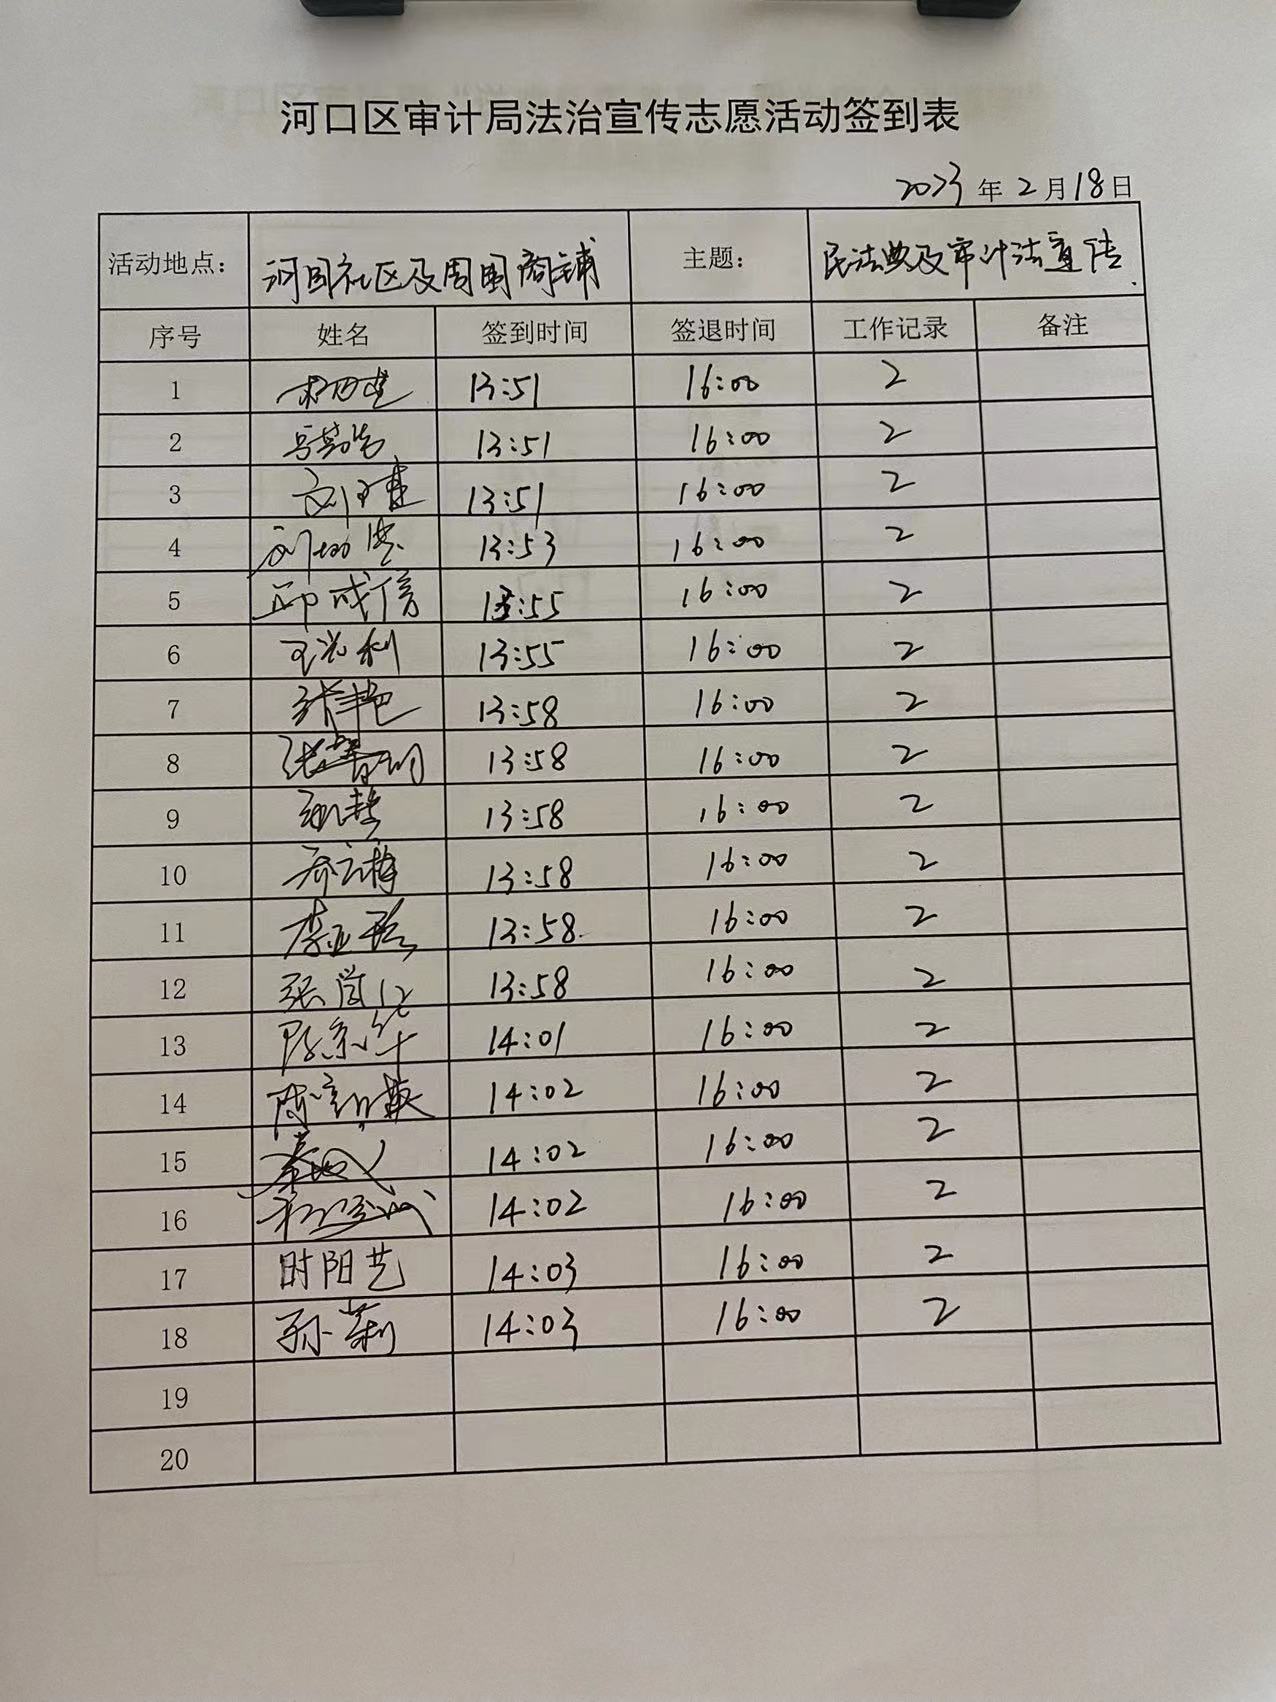 河口区审计局法治宣传志愿活动签到表
2023年2月18日
活动地点： 河园社区及周围商铺 主题： 民法典及审计法宣传
序号 姓名 签到时间 签退时间 工作记录 备注
1 13:51 16:00 2
2 13:51 16:00 2
3 13:51 16:00 2
4 13:53 16:00 2
5 邱成信 13:55 16:00 2
6 王兴利 13:55 16:00 2
7 13:58 16:00 2
8 13:58 16:00 2
9 13:58 16:00 2
10 13:58 16:00 2
11 13:58 16:00 2
12 13:58 16:00 2
13 14:01 16:00 2
14 14:02 16:00 2
15 14:02 16:00 2
16 14:02 16:00 2
17 时阳艺 14:03 16:00 2
18 孙莉 14:03 16:00 2
19
20